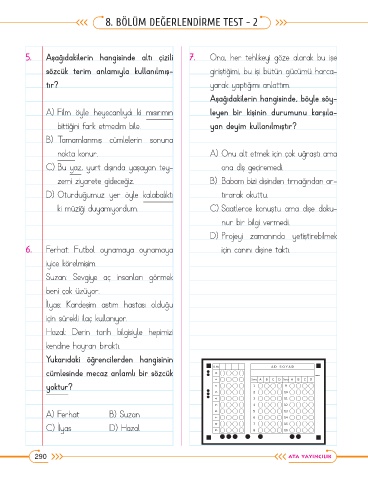 8. BÖLÜM DEĞERLENDİRME TEST - 2
5. Aşağıdakilerin hangisinde altı çizili
sözcük terim anlamıyla kullanılmış-
tır?
A) Film öyle heyecanlıydı ki mısırımın
bittiğini fark etmedim bile.
B) Tamamlanmış cümlelerin sonuna
nokta konur.
C) Bu yaz, yurt dışında yaşayan tey-
zemi ziyarete gideceğiz.
D) Oturduğumuz yer öyle kalabalıktı
ki müziği duyamıyordum.
6. Ferhat: Futbol oynamaya oynamaya
iyice körelmişim.
Suzan: Sevgiye aç insanları görmek
beni çok üzüyor.
İlyas: Kardeşim astım hastası olduğu
için sürekli ilaç kullanıyor.
Hazal: Derin tarih bilgisiyle hepimizi
kendine hayran bıraktı.
Yukarıdaki öğrencilerden hangisinin
cümlesinde mecaz anlamlı bir sözcük
yoktur?
A) Ferhat B) Suzan
C) İlyas D) Hazal
7. Ona, her tehlikeyi göze alarak bu işe
giriştiğimi, bu işi bütün gücümü harca-
yarak yaptığımı anlattım.
Aşağıdakilerin hangisinde, böyle söy-
leyen bir kişinin durumunu karşıla-
yan deyim kullanılmıştır?
A) Onu alt etmek için çok uğraştı ama
ona diş geçiremedi.
B) Babam bizi dişinden tırnağından ar-
tırarak okuttu.
C) Saatlerce konuştu ama dişe doku-
nur bir bilgi vermedi.
D) Projeyi zamanında yetiştirebilmek
için canını dişine taktı.
AD - SOYAD
A B C D A B C D
290
ATA YAYINCILIK